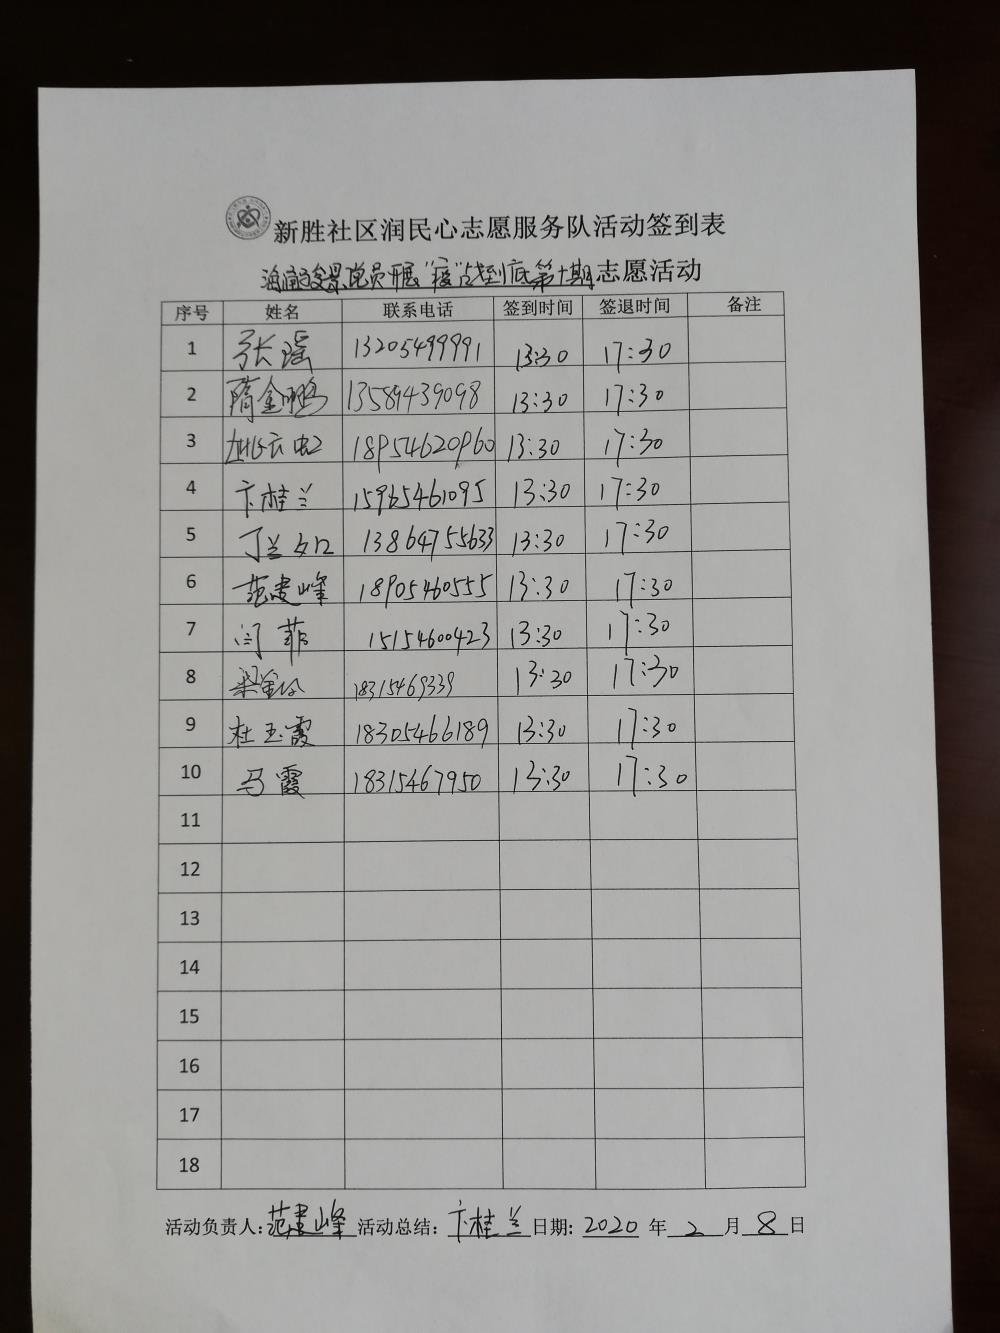 新胜社区润民心志愿服务队活动签到表
党员开展“疫”战到底第十期志愿活动
序号 姓名 联系电话 签到时间 签退时间 备注
1 张瑶 13205499991 13:30 17:30
2 隋金鹏 13589439098 13:30 17:30
3 18954620960 13:30 17:30
4 卞桂兰 15965461095 13:30 17:30
5 丁兰如 13864755633 13:30 17:30
6 范建峰 18905460555 13:30 17:30
7 闫菲 15154600423 13:30 17:30
8 18315469339 13:30 17:30
9 杜玉霞 18305466189 13:30 17:30
10 马霞 18315467950 13:30 17:30
11
12
13
14
15
16
17
18
活动负责人:范建峰 活动总结: 卞桂兰 日期: 2020 年 2 月 8 日